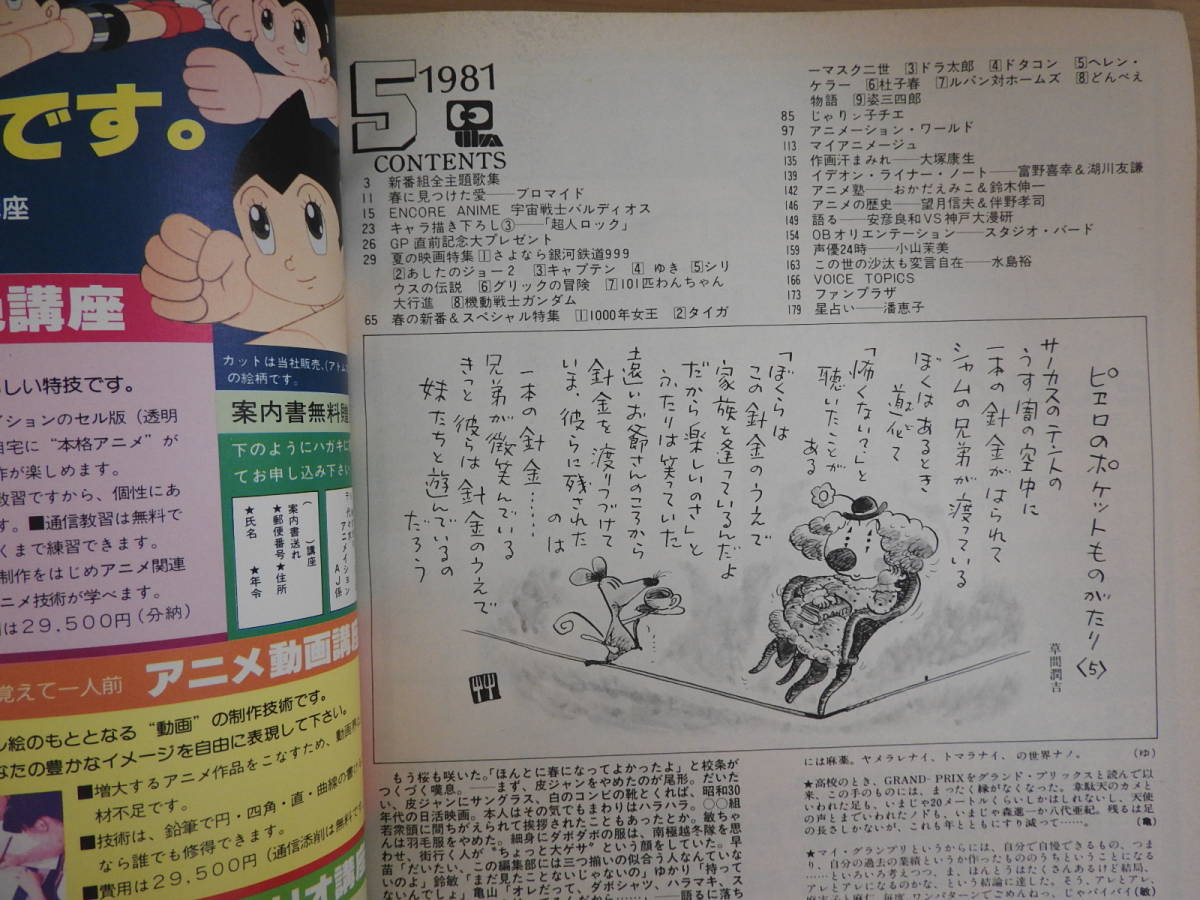 です。
座
講座
しい特技です。
イションのセル版（透明
自宅に“本格アニメ”が
作が楽しめます。
教習ですから、個性にあ
す。■通信教習は無料で
くまで練習できます。
制作をはじめアニメ関連
ニメ技術が学べます。
用は29,500円（分納）
カットは当社販売、（アトム
の絵柄です。
案内書無料贈
下のようにハガキに
てお申し込み下さい
（　　）講座
案内書送れ
★郵便番号★住所
★氏名　★年令
覚えて一人前　アニメ動画講座
ル絵のもととなる“動画”の制作技術です。
なたの豊かなイメージを自由に表現して下さい。
■増大するアニメ作品をこなすため、動画界は
材不足です。
■技術は、鉛筆で円・四角・直・曲線の書け
なら誰でも修得できます。
■費用は29,500円（通信添削は無料です
5 1981
CONTENTS
3　新番組全主題歌集
11　春に見つけた愛――ブロマイド
15　ENCORE ANIME 宇宙戦士バルディオス
23　キャラ描き下ろし③――「超人ロック」
26　GP直前記念大プレゼント
29　夏の映画特集 1さよなら銀河鉄道999
2あしたのジョー2　3キャプテン　4ゆき　5シリ
ウスの伝説　6グリックの冒険　7101匹わんちゃん
大行進　8機動戦士ガンダム
65　春の新番＆スペシャル特集　11000年女王　2タイガ
ーマスク二世　3ドラ太郎　4ドタコン　5ヘレン・
ケラー　6杜子春　7ルパン対ホームズ　8どんべえ
物語　9姿三四郎
85　じゃリン子チエ
97　アニメーション・ワールド
113　マイアニメージュ
135　作画汗まみれ――大塚康生
139　イデオン・ライナー・ノート――富野喜幸＆湖川友謙
142　アニメ塾――おかだえみこ＆鈴木伸一
146　アニメの歴史――望月信夫＆伴野孝司
149　語る――安彦良和VS神戸大漫研
154　OBオリエンテーション――スタジオ・バード
159　声優24時――小山茉美
163　この世の沙汰も変言自在――水島裕
166　VOICE TOPICS
173　ファンプラザ
179　星占い――潘恵子
ピエロのポケットものがたり〈5〉
草間潤吉
サーカスのテントの
うす闇の空中に
一本の針金がはられて
シャムの兄弟が渡っている
ぼくはあるとき
道化て
「怖くない？」と
聴いたことが
ある
「ぼくらは
この針金のうえで
家族と逢っているんだよ
だから楽しいのさ」と
ふたりは笑っていた
遠いお爺さんのころから
針金を渡りつづけて
いま、彼らに残された
のは
一本の針金……
兄弟が微笑んでいる
きっと彼らは針金のうえで
妹たちと遊んでいるの
だろう
もう桜も咲いた。「ほんとに春になってよかったよ」と校条が
つくづく嘆息。――まず、皮ジャンをやめたのが尾形。だいた
い、皮ジャンにサングラス、白のコンビの靴とくれば、昭和30
年代の日活映画。本人はその気でもまわりはハラハラ。〇〇組
若衆頭に間ちがえられて挨拶されたこともあったとか。敏ちゃ
んは羽毛服をやめた。細身にダボダボの服は、南極越冬隊を思
わせ、街行く人が“ちょっと大ゲサ”という顔をしていた。早
苗「だいたい、この編集部には三つ揃いの似合う人なんていな
いのよ」鈴敏「まだ見たことないじゃないの」ゆかり「持って
ないんでしょ」亀山「オレだって、ダボシャツ、ハラマキ、ス
には麻薬。ヤメラレナイ、トマラナイ、の世界ナノ。　（ゆ）
★高校のとき、GRAND-PRIXをグランド・プリックスと読んで以
来、この手のものには、まったく縁がなくなった。韋駄天のカメと
いわれた足も、いまじゃ20メートルくらいしかはしれないし、天使
の声とまでいわれたノドも、いまじゃ森進一か八代亜紀。残るは足
の長さしかないが、これも年とともにすり減って……。　（亀）
★マイ・グランプリというからには、自分で自慢できるもの、つま
り、自分の過去の業績というか作ったもののうちということになる
……といろいろ考えつつ、ま、ほんとうはたくさんあるけど結局、
アレとアレになるのかな、という結論に達した。そう、アレとアレ、